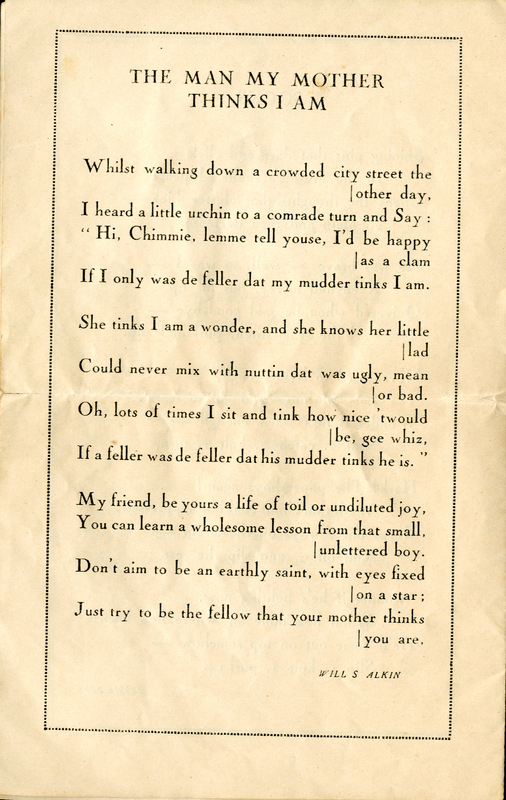 THE MAN MY MOTHER
THINKS I AM
Whilst walking down a crowded city street the
|other day,
I heard a little urchin to a comrade turn and Say :
“ Hi, Chimmie, lemme tell youse, I'd be happy
|as a clam
If I only was de feller dat my mudder tinks I am.
She tinks I am a wonder, and she knows her little
|lad
Could never mix with nuttin dat was ugly, mean
|or bad.
Oh, lots of times I sit and tink how nice 'twould
|be, gee whiz,
If a feller was de feller dat his mudder tinks he is. ”
My friend, be yours a life of toil or undiluted joy,
You can learn a wholesome lesson from that small,
|unlettered boy.
Don't aim to be an earthly saint, with eyes fixed
|on a star ;
Just try to be the fellow that your mother thinks
|you are.
WILL S ALKIN